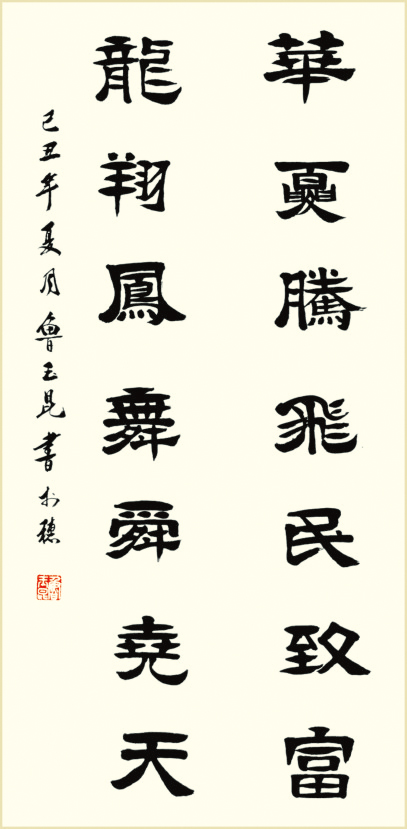 華夏騰飛民致富
龍翔鳳舞舜堯天
己丑年夏月魯玉昆書於穗